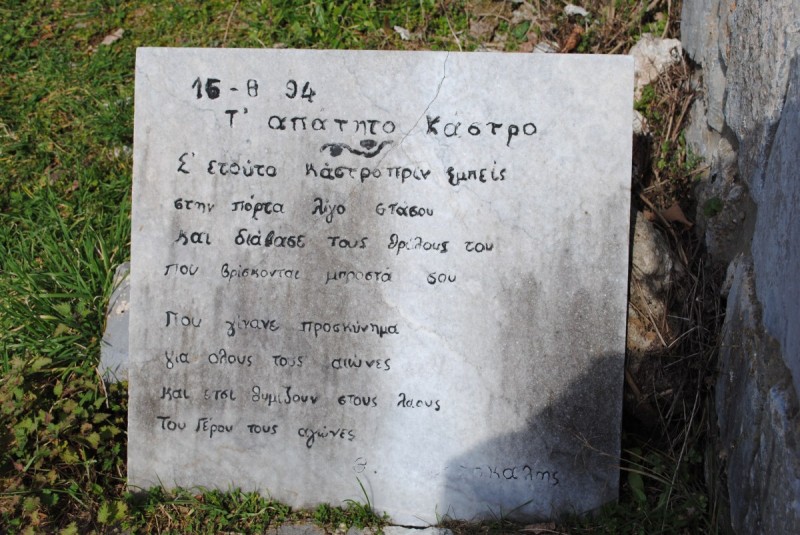 15-8 94
Τ' απατητο Κάστρο
Σ' ετούτο κάστρο πριν εμπείς
στην πόρτα λίγο στάσου
και διάβασε τους θρύλους του
που βρίσκονται μπροστά σου
Που γίνανε προσκύνημα
για ολους τους αιώνες
και ετσι θυμιζουν στους λαους
Του Γέρου τους αγώνες
Θ.